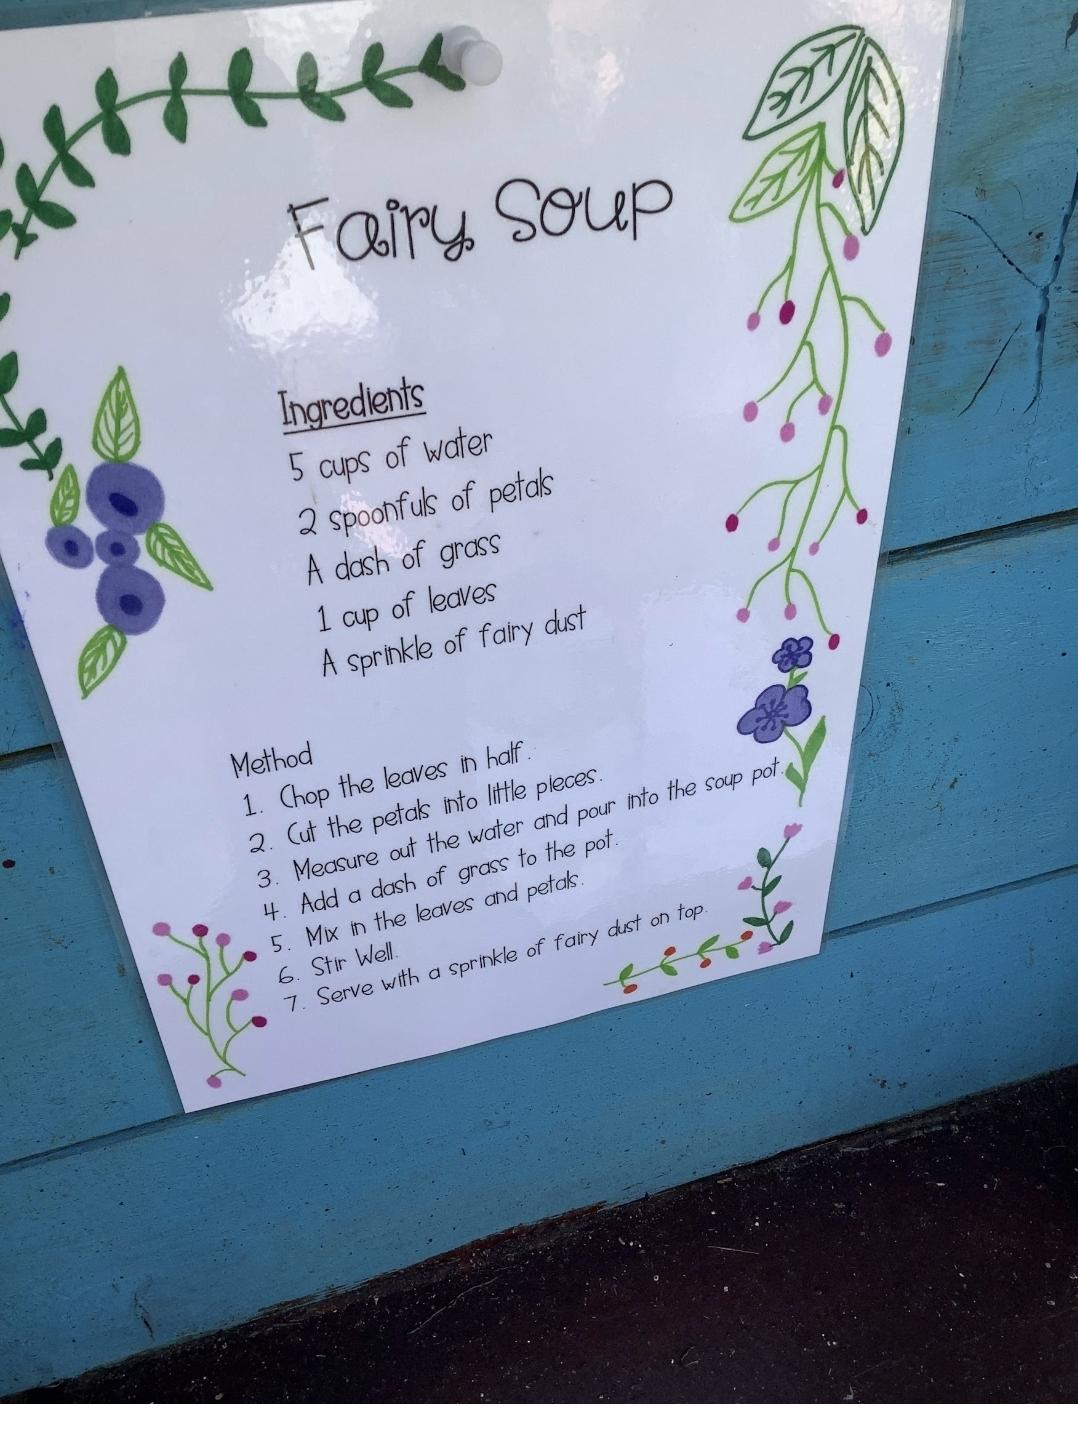 Fairy Soup
Ingredients
5 cups of water
2 spoonfuls of petals
A dash of grass
1 cup of leaves
A sprinkle of fairy dust
Method
1. Chop the leaves in half.
2. Cut the petals into little pieces.
3. Measure out the water and pour into the soup pot.
4. Add a dash of grass to the pot.
5. Mix in the leaves and petals.
6. Stir Well.
7. Serve with a sprinkle of fairy dust on top.